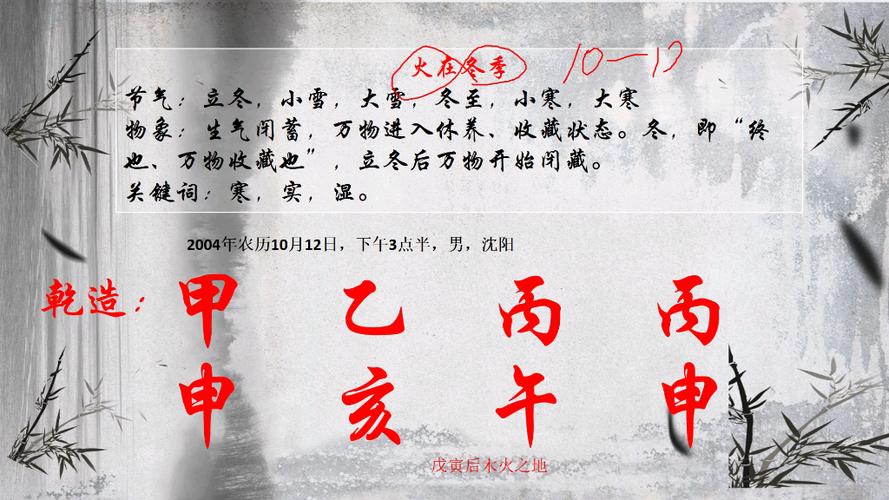 火在冬季 10—12
节气：立冬，小雪，大雪，冬至，小寒，大寒
物象：生气闭蓄，万物进入休养、收藏状态。冬，即“终
也、万物收藏也”，立冬后万物开始闭藏。
关键词：寒，实，湿。
2004年农历10月12日，下午3点半，男，沈阳
乾造：甲 乙 丙 丙
申 亥 午 申
戊寅后木火之地